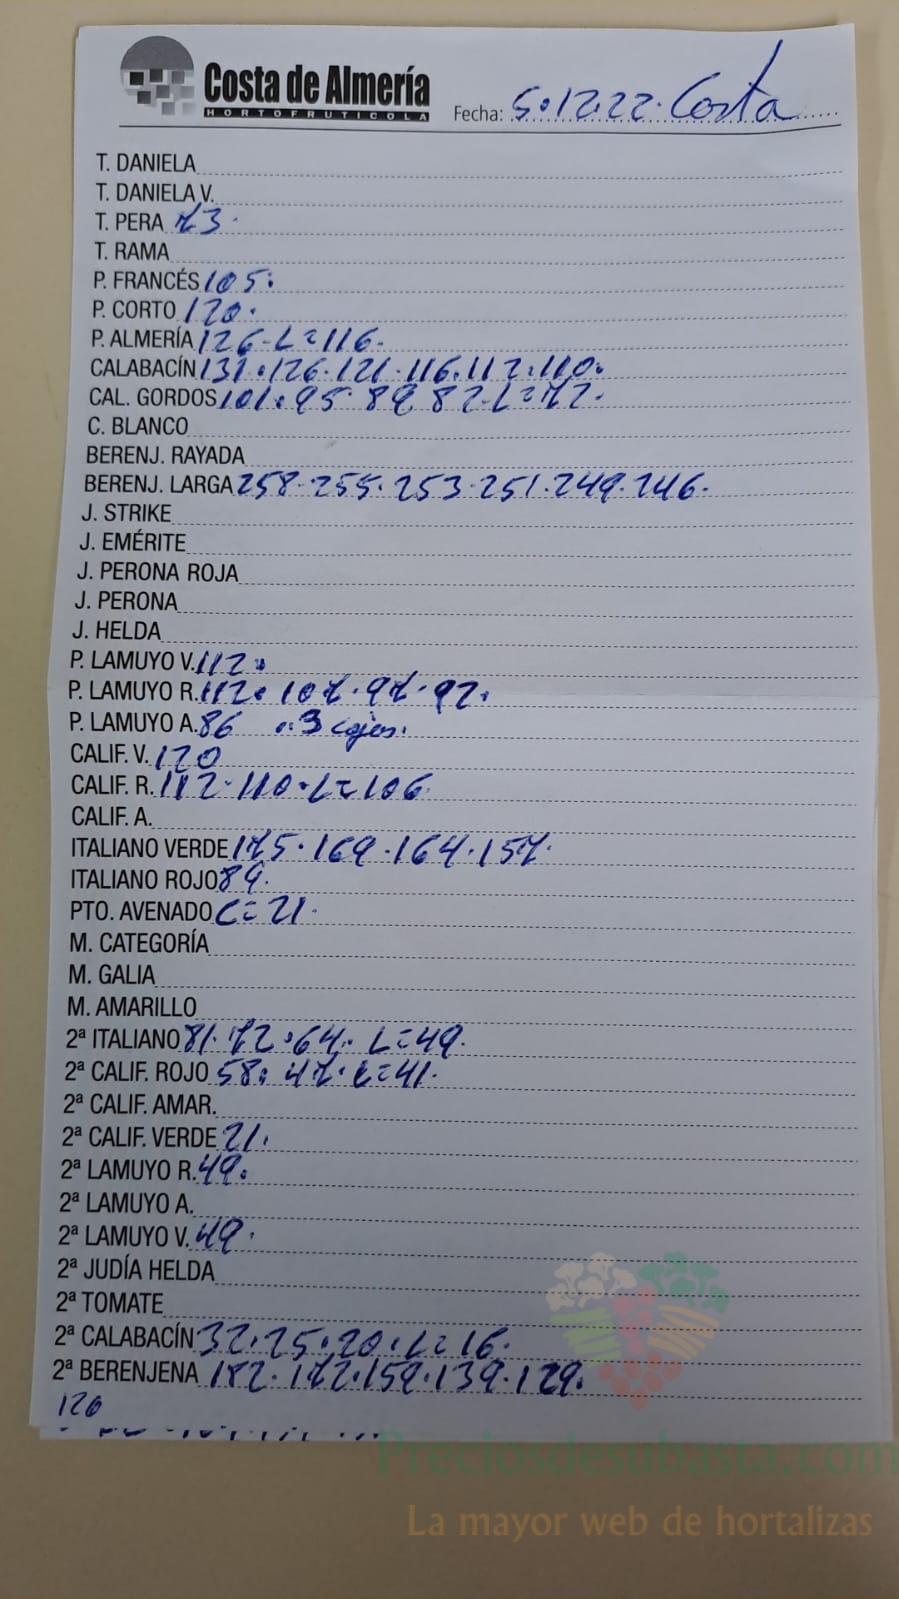 Costa de Almería
HORTOFRUTICOLA
Fecha: 5.12.22. Costa
T. DANIELA
T. DANIELA V.
T. PERA 73.
T. RAMA
P. FRANCÉS 105.
P. CORTO 120.
P. ALMERÍA 126-L=116.
CALABACÍN 131.126.121.116.112.110.
CAL. GORDOS 101.95.89.82-L=72.
C. BLANCO
BERENJ. RAYADA
BERENJ. LARGA 258.255.253.251.249.246.
J. STRIKE
J. EMÉRITE
J. PERONA ROJA
J. PERONA
J. HELDA
P. LAMUYO V. 112.
P. LAMUYO R. 112. 107.97.92.
P. LAMUYO A. 86 3 cajas.
CALIF. V. 120
CALIF. R. 112.110.L=106
CALIF. A.
ITALIANO VERDE 175.169.164.157.
ITALIANO ROJO 89.
PTO. AVENADO L=21.
M. CATEGORÍA
M. GALIA
M. AMARILLO
2ª ITALIANO 81.72.64. L=49.
2ª CALIF. ROJO 58.47.L=41.
2ª CALIF. AMAR.
2ª CALIF. VERDE 21.
2ª LAMUYO R. 49.
2ª LAMUYO A.
2ª LAMUYO V. 49.
2ª JUDÍA HELDA
2ª TOMATE
2ª CALABACÍN 32.25.20.L=16.
2ª BERENJENA 182.172.159.139.129.
120
Preciosdesubasta.com
La mayor web de hortalizas